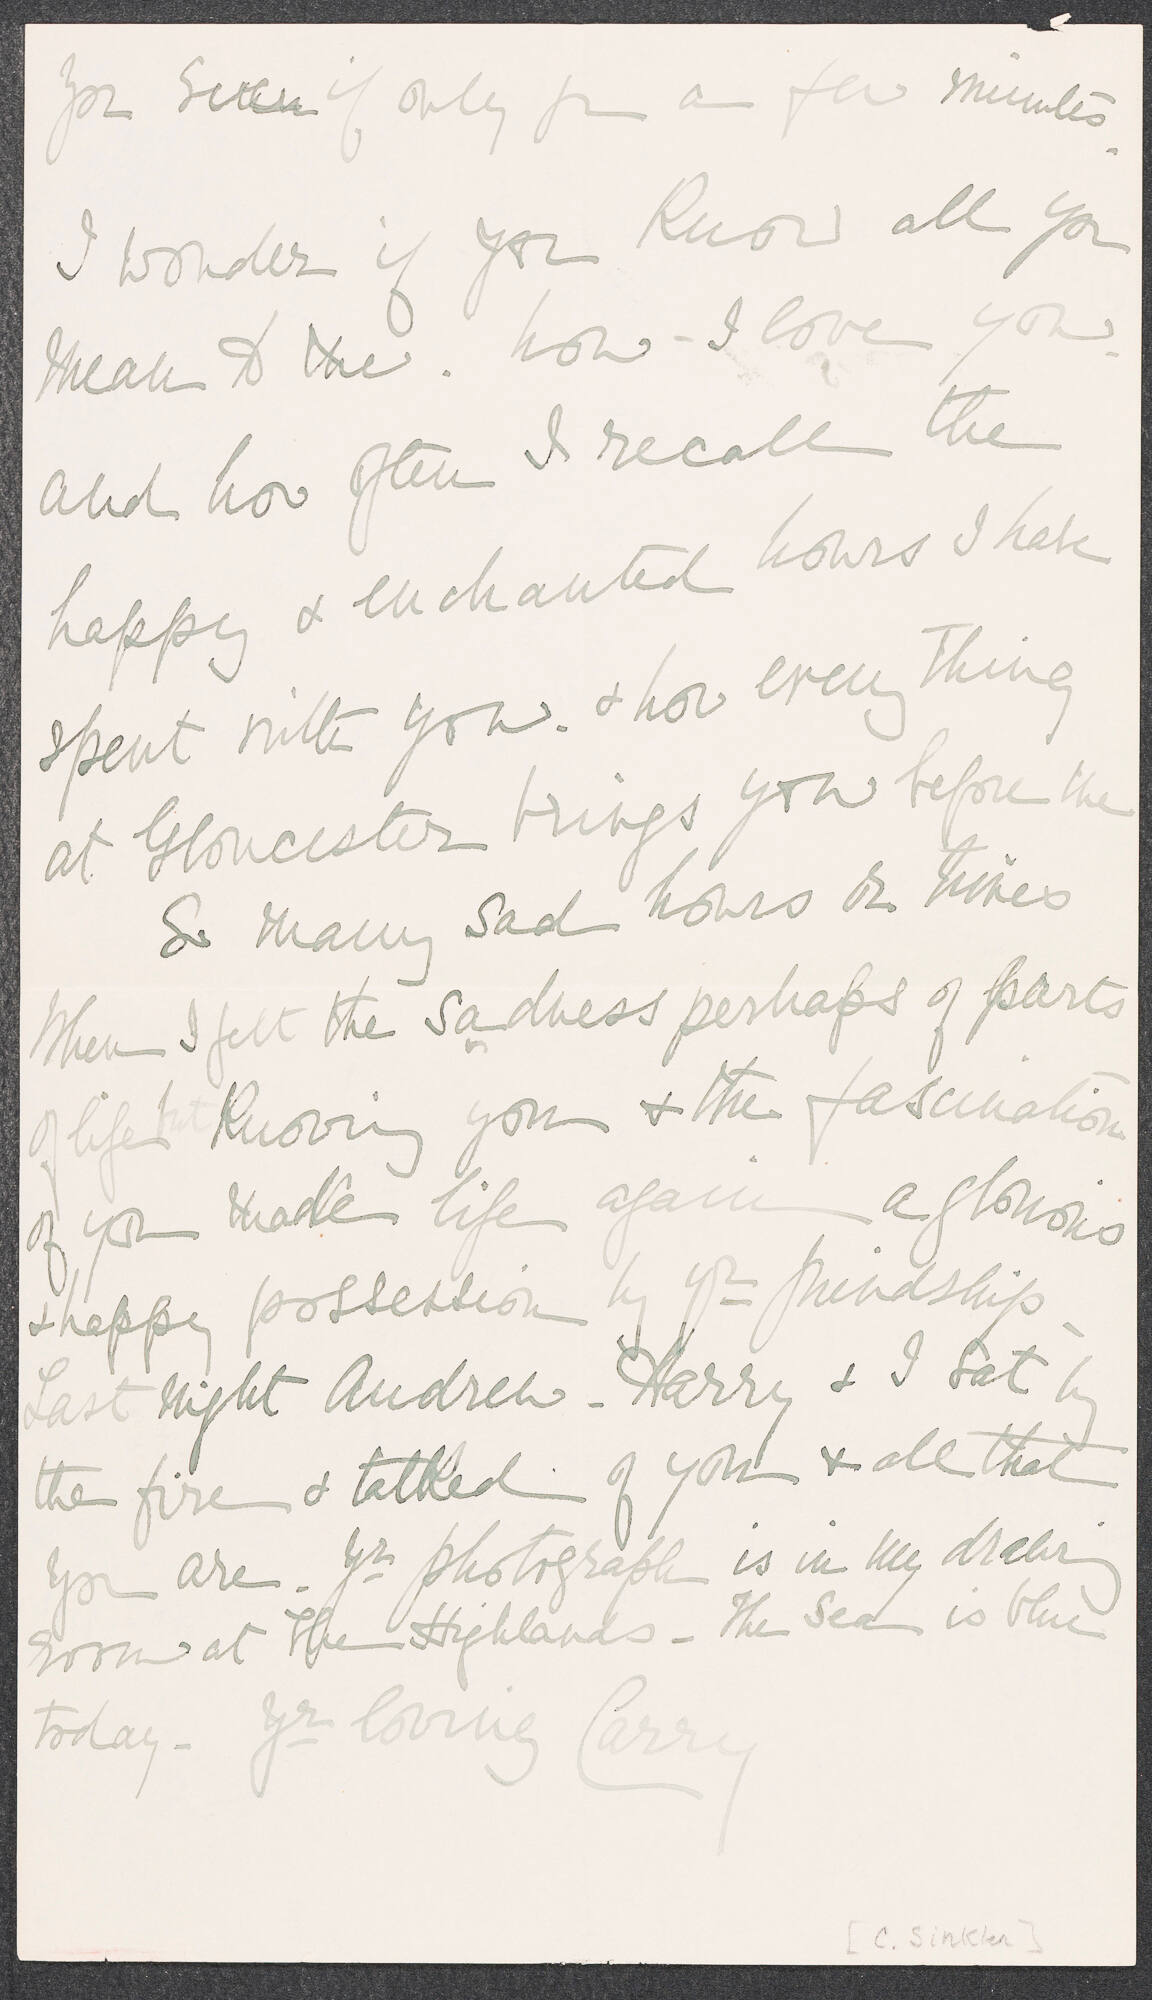 you even if only for a few minutes.
I wonder if you Know all you
mean to me. how - I love you.
and how often I recall the
happy & enchanted hours I have
spent with you. & how every thing
at Gloucester brings you before me
So many sad hours or times
When I felt the sadness perhaps of parts
of life but Knowing you & the fascination
of you made life again a glorious
& happy possession by yr friendship
Last night Andrew - Harry & I sat by
the fire & talked of you & all that
you are - Yr photograph is in my drawing
room at The Highlands - The Sea is blue
today - Yr loving Carry
[C. Sinkler]